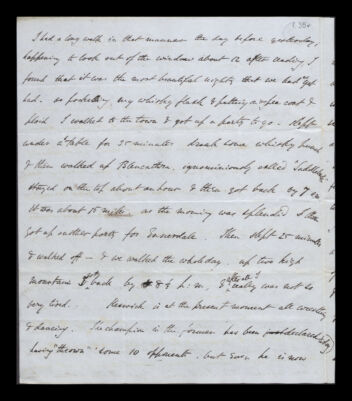 I had a long walk in that manner the day before yesterday,
happening to look out of the window about 12 after reading I
found that it was the most beautiful night that we had yet
had. so pocketing my whisky flask & putting a pea coat &
plaid I walked to the town & got up a party to go. Slept
under a table for 35 minutes drank some whisky punch
& then walked up Blencathra, ignominiously called Saddleback
stayed on the top about an hour & then got back by 7 am
it was about 15 miles. as the morning was splendid I then
got up another party for Ennerdale. Then slept 25 minutes
& walked off – & we walked the whole day. up two high
mountains & back by 8 p.m. & really was not so
very tired. Keswick is at the present moment all wrestling
& dancing. The champion in the former has been declared today
having "thrown" some 10 opponents. but even he is now